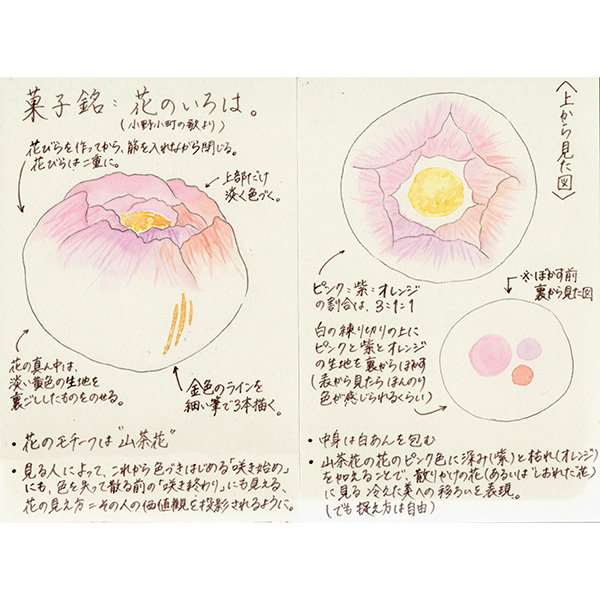 菓子銘：花のいろは。
（小野小町の歌より）
花びらを作ってから、筋を入れながら閉じる。
花びらは二重に。
上部だけ
淡く色づく。
花の真ん中は、
淡い黄色の生地を
裏ごししたものをのせる。
金色のラインを
細い筆で3本描く。
・花のモチーフは"山茶花"
・見る人によって、これから色づきはじめる「咲き始め」
にも、色を失って散る前の「咲き終わり」にも見える、
花の見え方＝その人の価値観を投影されるように。
〈上から見た図〉
ピンク：紫：オレンジ
の割合は、3：1：1
※ぼかす前
裏から見た図
白の練り切りの上に
ピンクと紫とオレンジ
の生地を裏からぼかす
（表から見たらほんのり
色が感じられるくらい）
・中身は白あんを包む
・山茶花の花のピンク色に深み（紫）と枯れ（オレンジ）
を加えることで、散りかけの花（あるいは"しおれた花"）
に見る冷えた美への移ろいを表現。
（でも捉え方は自由）